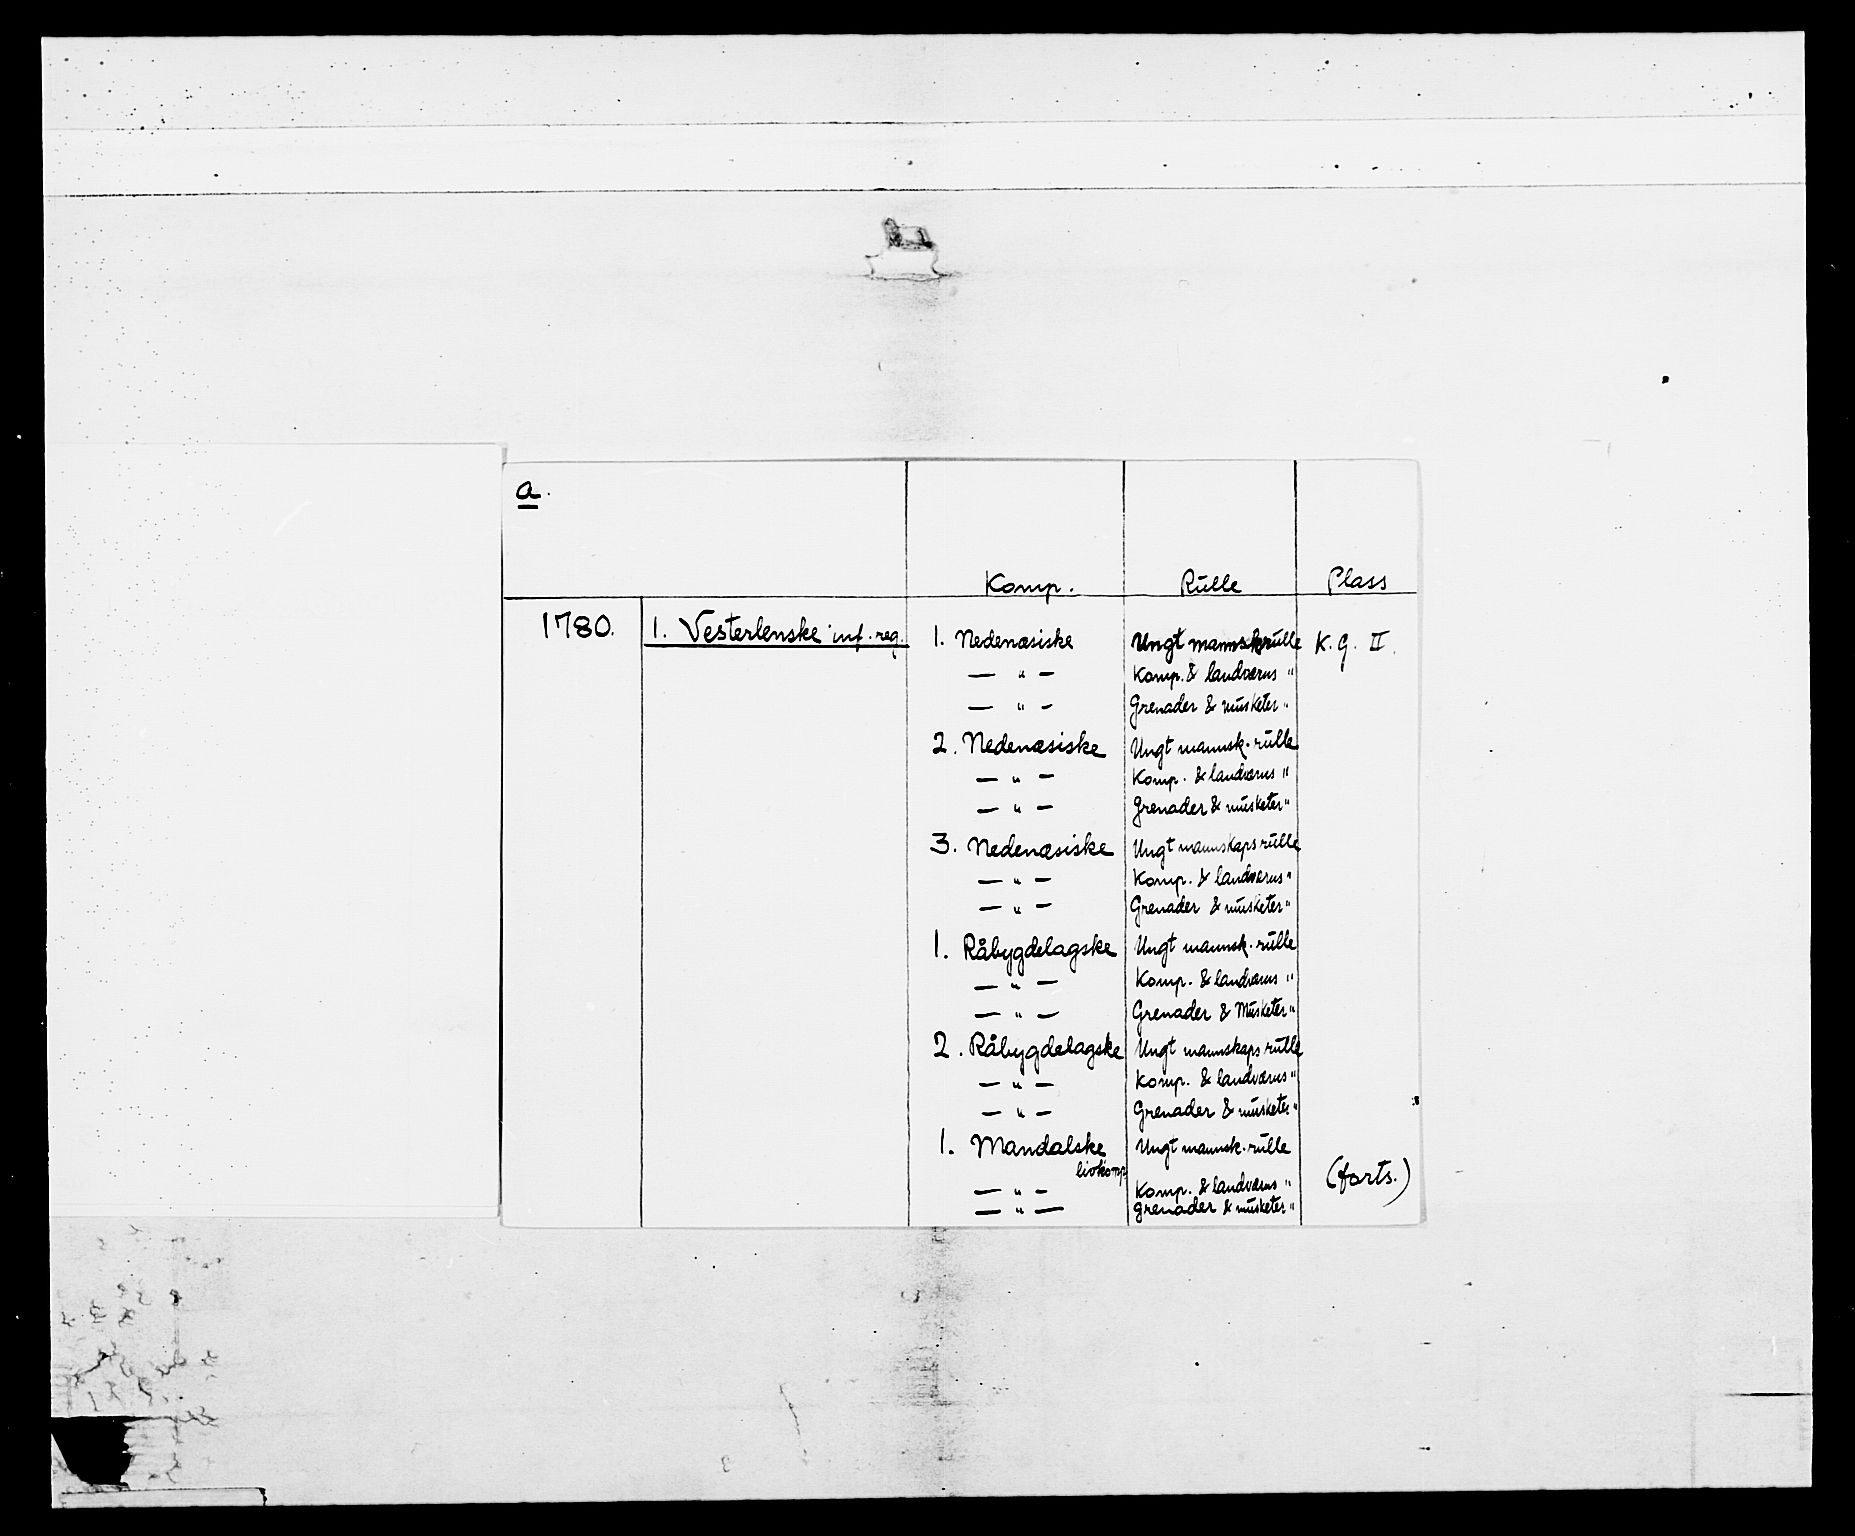 a.
Komp. Rulle Plass
1780. 1. Vesterlenske inf. reg. 1. Nedenæsiske Ungt mannskrulle K. G. II.
— " — Komp. & landværns "
— " — Grenader & musketer "
2. Nedenæsiske Ungt mannsk. rulle
— " — Komp. & landværns "
— " — Grenader & musketer "
3. Nedenæsiske Ungt mannskaps rulle
— " — Komp. & landværns "
— " — Grenader & musketer "
1. Råbygdelagske Ungt mannsk. rulle
— " — Komp. & landværns "
— " — Grenader & Musketer "
2. Råbygdelagske Ungt mannskaps rulle
— " — Komp. & landværns "
— " — Grenader & musketer "
1. Mandalske Ungt mannsk. rulle
livkomp
— " — Komp. & landværns " (forts.)
— " — grenader & musketer "